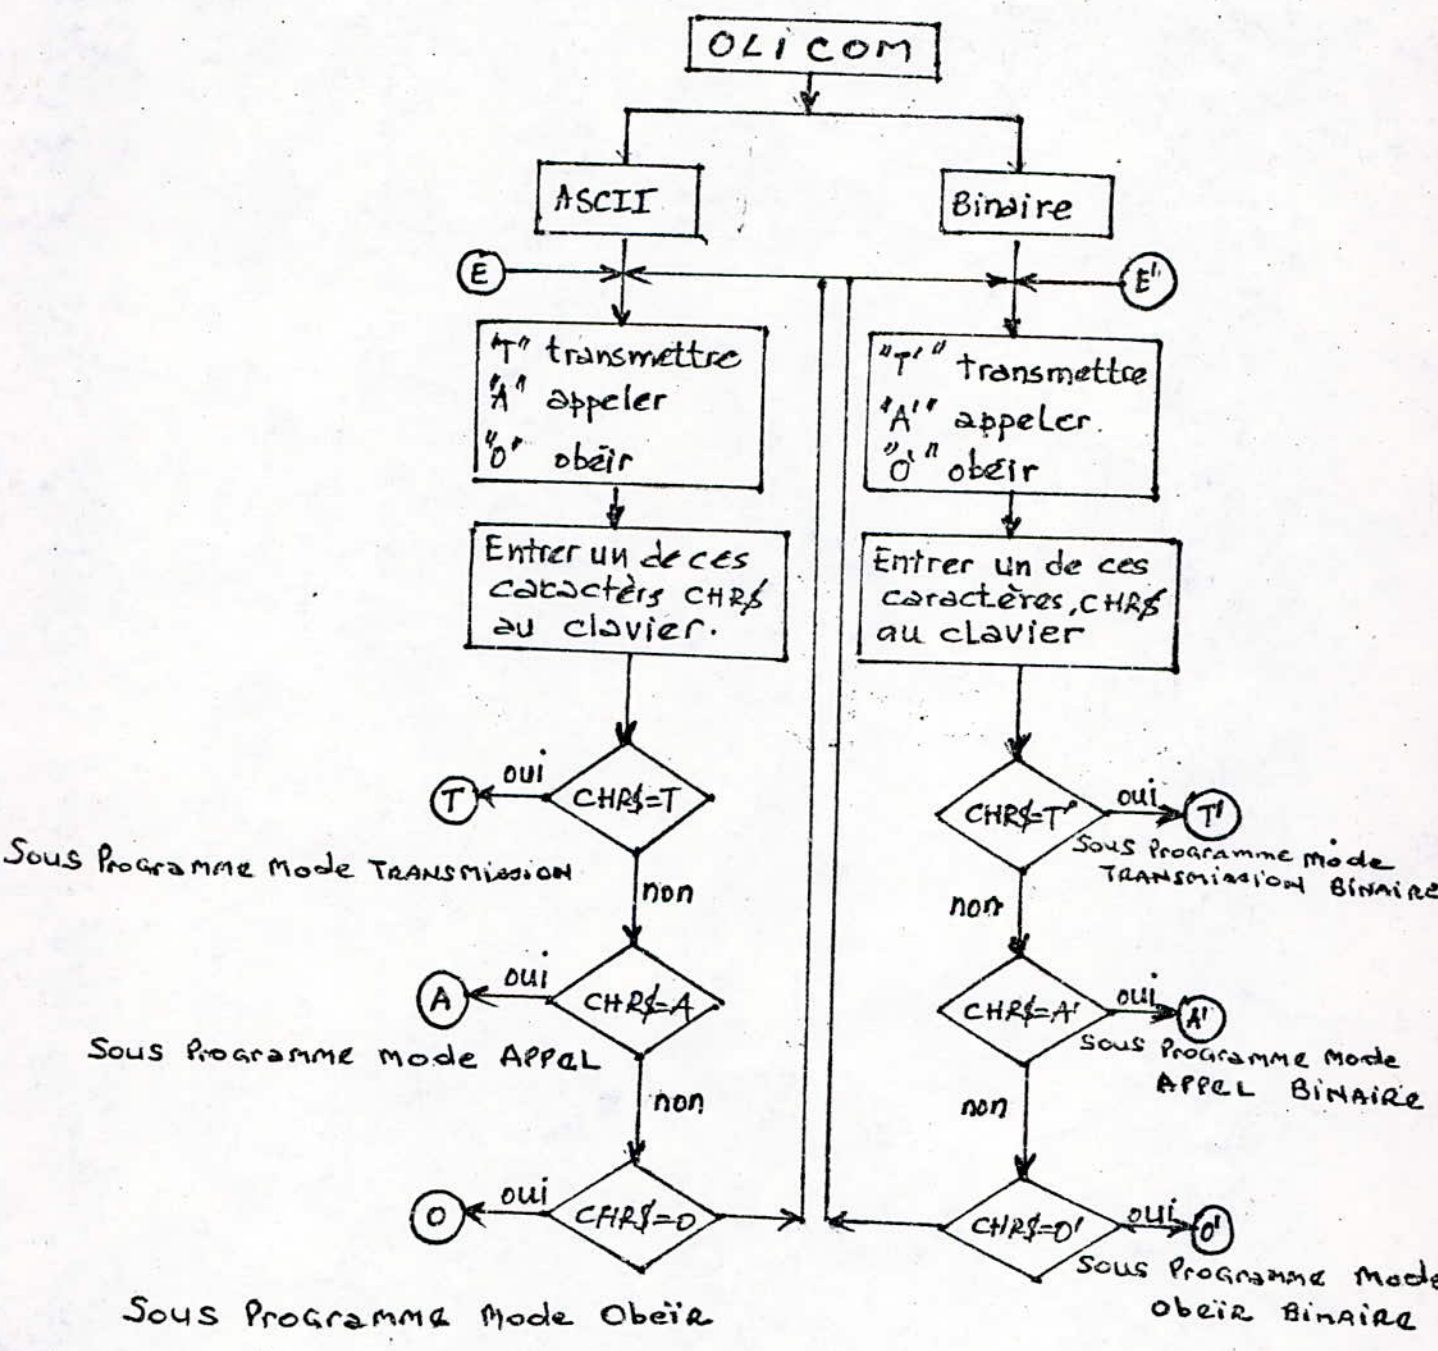 OLICOM
ASCII
Binaire
E
E'
"T" transmettre
"A" appeler
"O" obeïr
"T'" transmettre
"A'" appeler.
"O'" obéir
Entrer un de ces
caractèrs CHR$
au clavier.
Entrer un de ces
caractères, CHR$
au clavier
T
oui
CHR$=T
Sous Programme Mode TRANSMISSION
non
CHR$=T'
oui
T'
Sous Programme mode
TRANSMISSION BINAIRE
non
A
oui
CHR$=A
Sous Programme mode APPEL
non
CHR$=A'
oui
A'
Sous Programme Mode
APPEL BINAIRE
non
O
oui
CHR$=O
Sous Programme Mode Obeïr
CHR$=O'
oui
O'
Sous Programme Mode
Obeïr BINAIRE